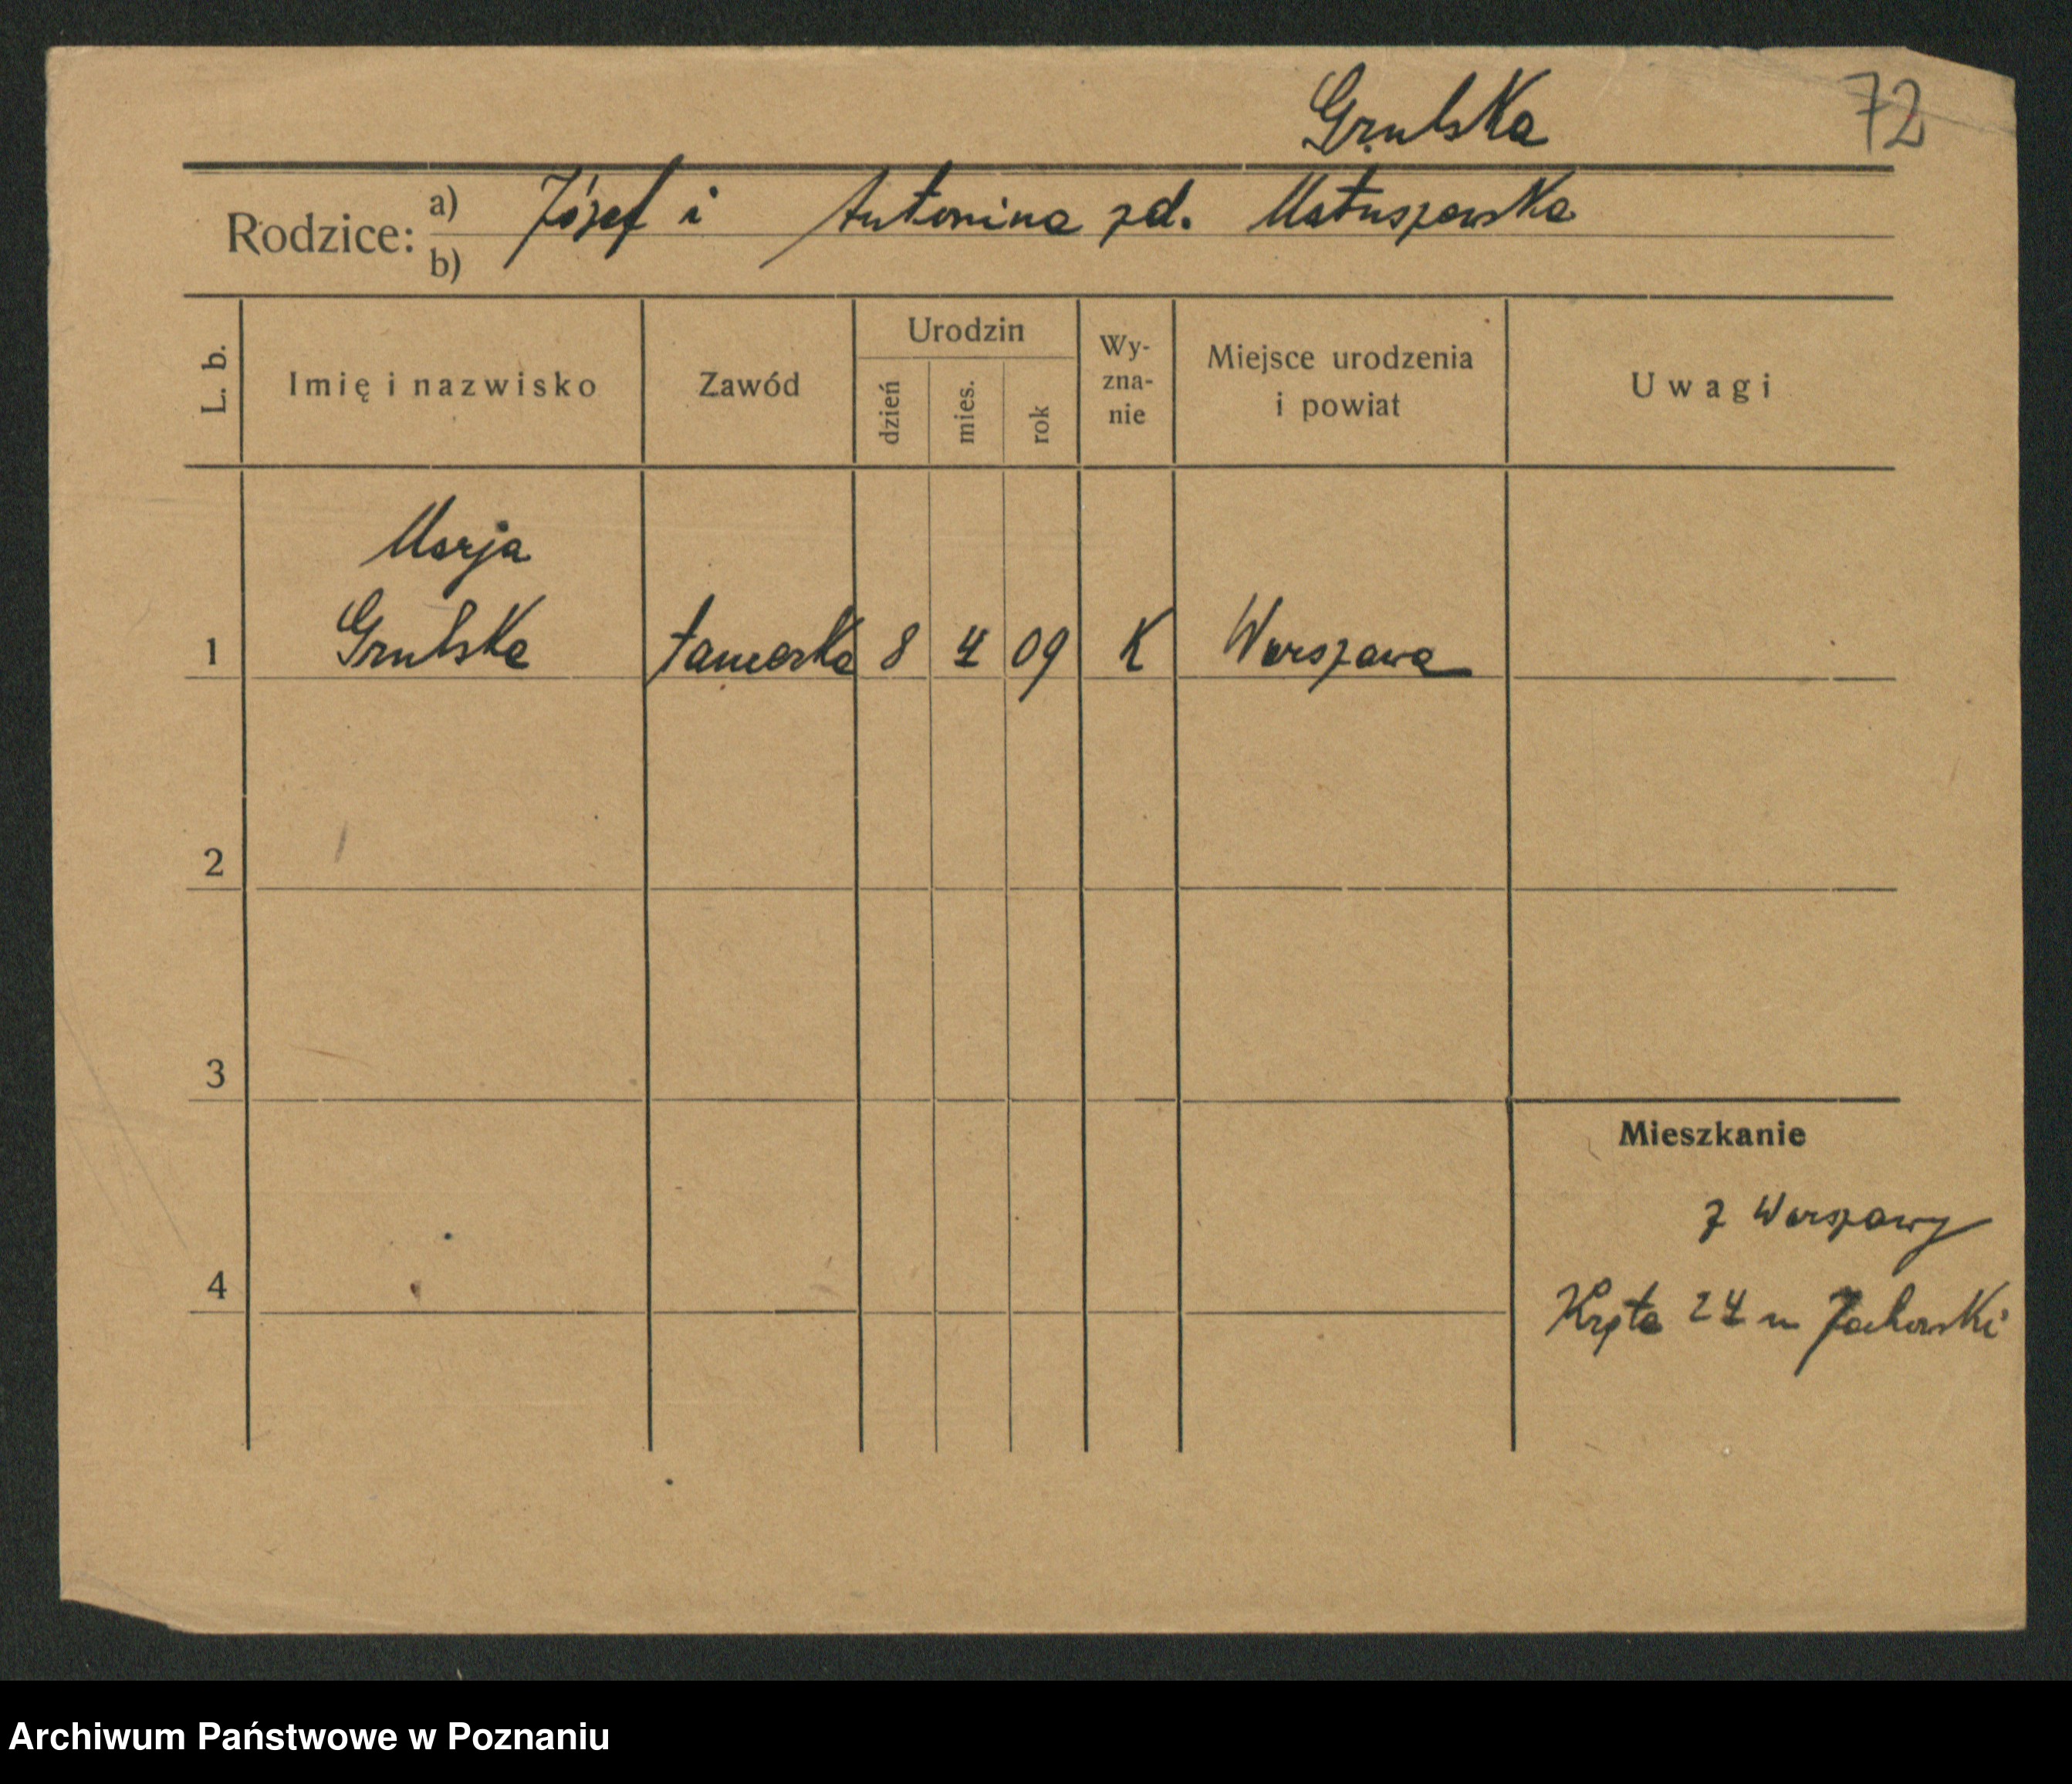 Grulska
72
Rodzice: a) Józef i Antonina zd. Matuszewska
b)
L. b. Imię i nazwisko Zawód Urodzin dzień mies. rok Wy-zna-nie Miejsce urodzenia i powiat Uwagi
Marja
1 Grulska 8 4 09 K Warszawa
2
3
Mieszkanie
z Warszawy
4
Kręta 24 u
Archiwum Państwowe w Poznaniu